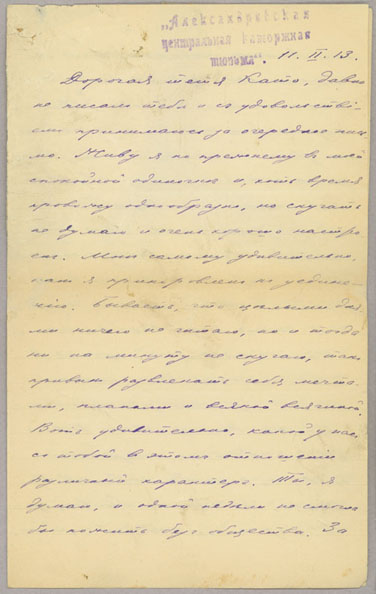 „Александровская
центральная каторжная
тюрьма".
11. II. 13.
Дорогая тетя Като, давно
не писалъ тебѣ и съ удовольстві-
емъ принимаюсь за очередное пись-
мо. Живу я по прежнему въ моей
спокойной одиночкѣ и, хоть время
провожу однообразно, но скучать
не думаю и очень хорошо настро-
енъ. Мнѣ самому удивительно,
какъ я къ уедине-
нію. Бываетъ, что цѣлыми дня-
ми ничего не читаю, но и тогда
ни на минуту не скучаю, такъ
привыкъ развлекать себя мечта-
ми, планами и всякой всячиной.
Вотъ удивительно, какой у насъ
съ тобой въ этомъ отношеніи
различный характеръ. Ты, я
думаю, и одной недѣли не смогла
бы прожить безъ общества. За